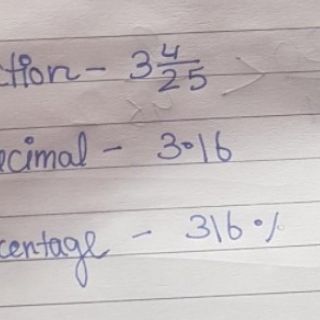 ction - 3 4/25
ecimal - 3.16
centage - 316%